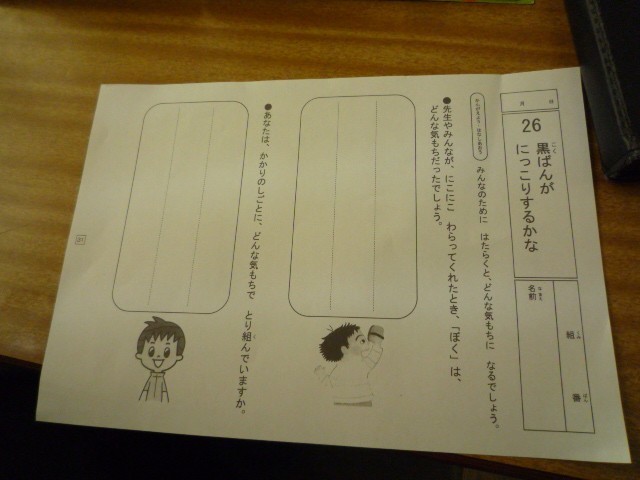 月 日
26 黒ばんが
にっこりするかな
こく
名前
なまえ
組 番
くみ ばん
みんなのために はたらくと、どんな気もちに なるでしょう。
●先生やみんなが、にこにこ わらってくれたとき、「ぼく」は、
どんな気もちだったでしょう。
●あなたは、かかりのしごとに、どんな気もちで とり組んでいますか。
く